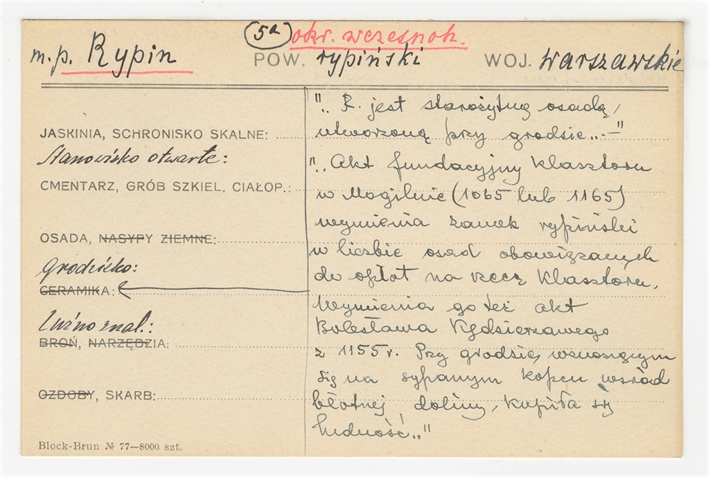 (5a) okr. wczesnoh.
m.p. Rypin POW. rypiński WOJ. warszawskie
JASKINIA, SCHRONISKO SKALNE:
Stanowisko otwarte:
CMENTARZ, GRÓB SZKIEL. CIAŁOP.:
OSADA, NASYPY ZIEMNE:
Grodzisko:
CERAMIKA:
Luźno znal.:
BROŃ, NARZĘDZIA:
OZDOBY, SKARB:
Block-Brun № 77—8000 szt.
".. R. jest starożytną osadą,
utworzoną przy grodzie..—"
".. Akt fundacyjny klasztoru
w Mogilnie (1065 lub 1165)
wymienia zamek rypiński
w liczbie osad obowiązanych
do opłat na rzecz klasztoru.
Wymienia go też akt
Bolesława Kędzierzawego
z 1155r. Przy grodzie, wznoszącym
się na sypanym kopcu wśród
błotnej doliny, kupiła się
ludność.."